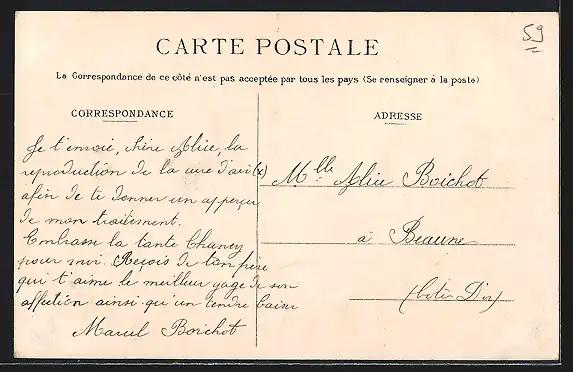 59
CARTE POSTALE
La Correspondance de ce côté n'est pas acceptée par tous les pays (Se renseigner à la poste)
CORRESPONDANCE
Je t'envoie, chère Alice, la
reproduction de la cure d'air (x)
afin de te donner un apperçu
de mon traitement.
Embrasse la tante Chancy
pour moi. Reçois de ton père
qui t'aime le meilleur gage de son
affection ainsi qu'un tendre baiser
Marcel Boichot
ADRESSE
Mlle Alice Boichot
à Beaune
(Côte D'or)